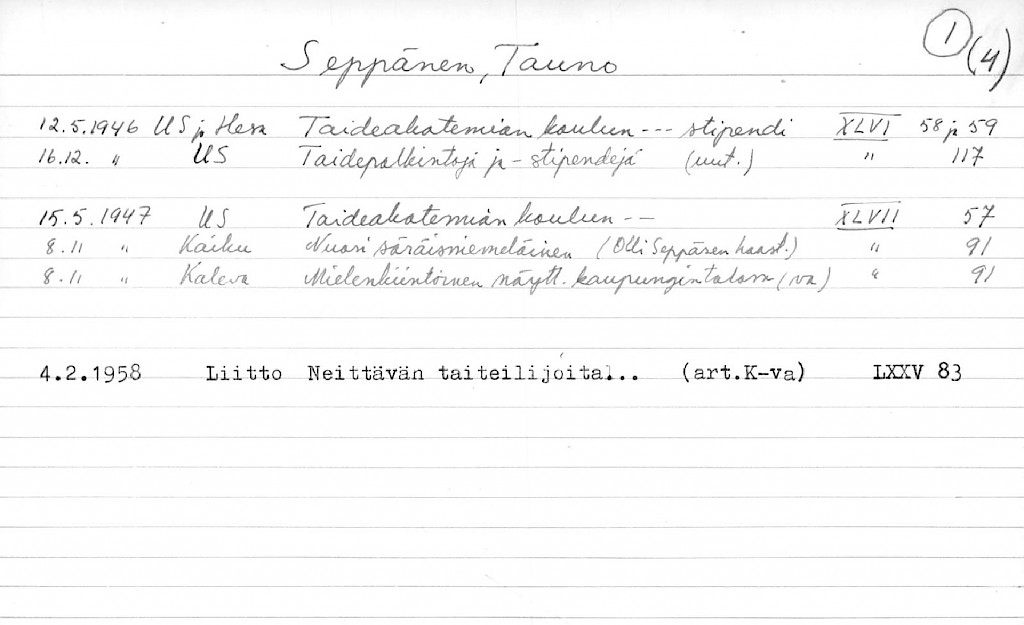 Seppänen, Tauno 1 (4)
12.5.1946 US ja Hesa Taideakatemian kouluun --- stipendi XLVI 58 ja 59
16.12. " US Taidepalkintoja ja - stipendejä (uut.) " 117
15.5.1947 US Taideakatemian kouluun -- XLVII 57
8.11 " Kaiku Nuori säräisniemeläinen (Olli Seppäsen haast.) " 91
8.11 " Kaleva Mielenkiintoinen näytt. kaupungintalossa (va) " 91
4.2.1958 Liitto Neittävän taiteilijoital... (art.K-va) LXXV 83